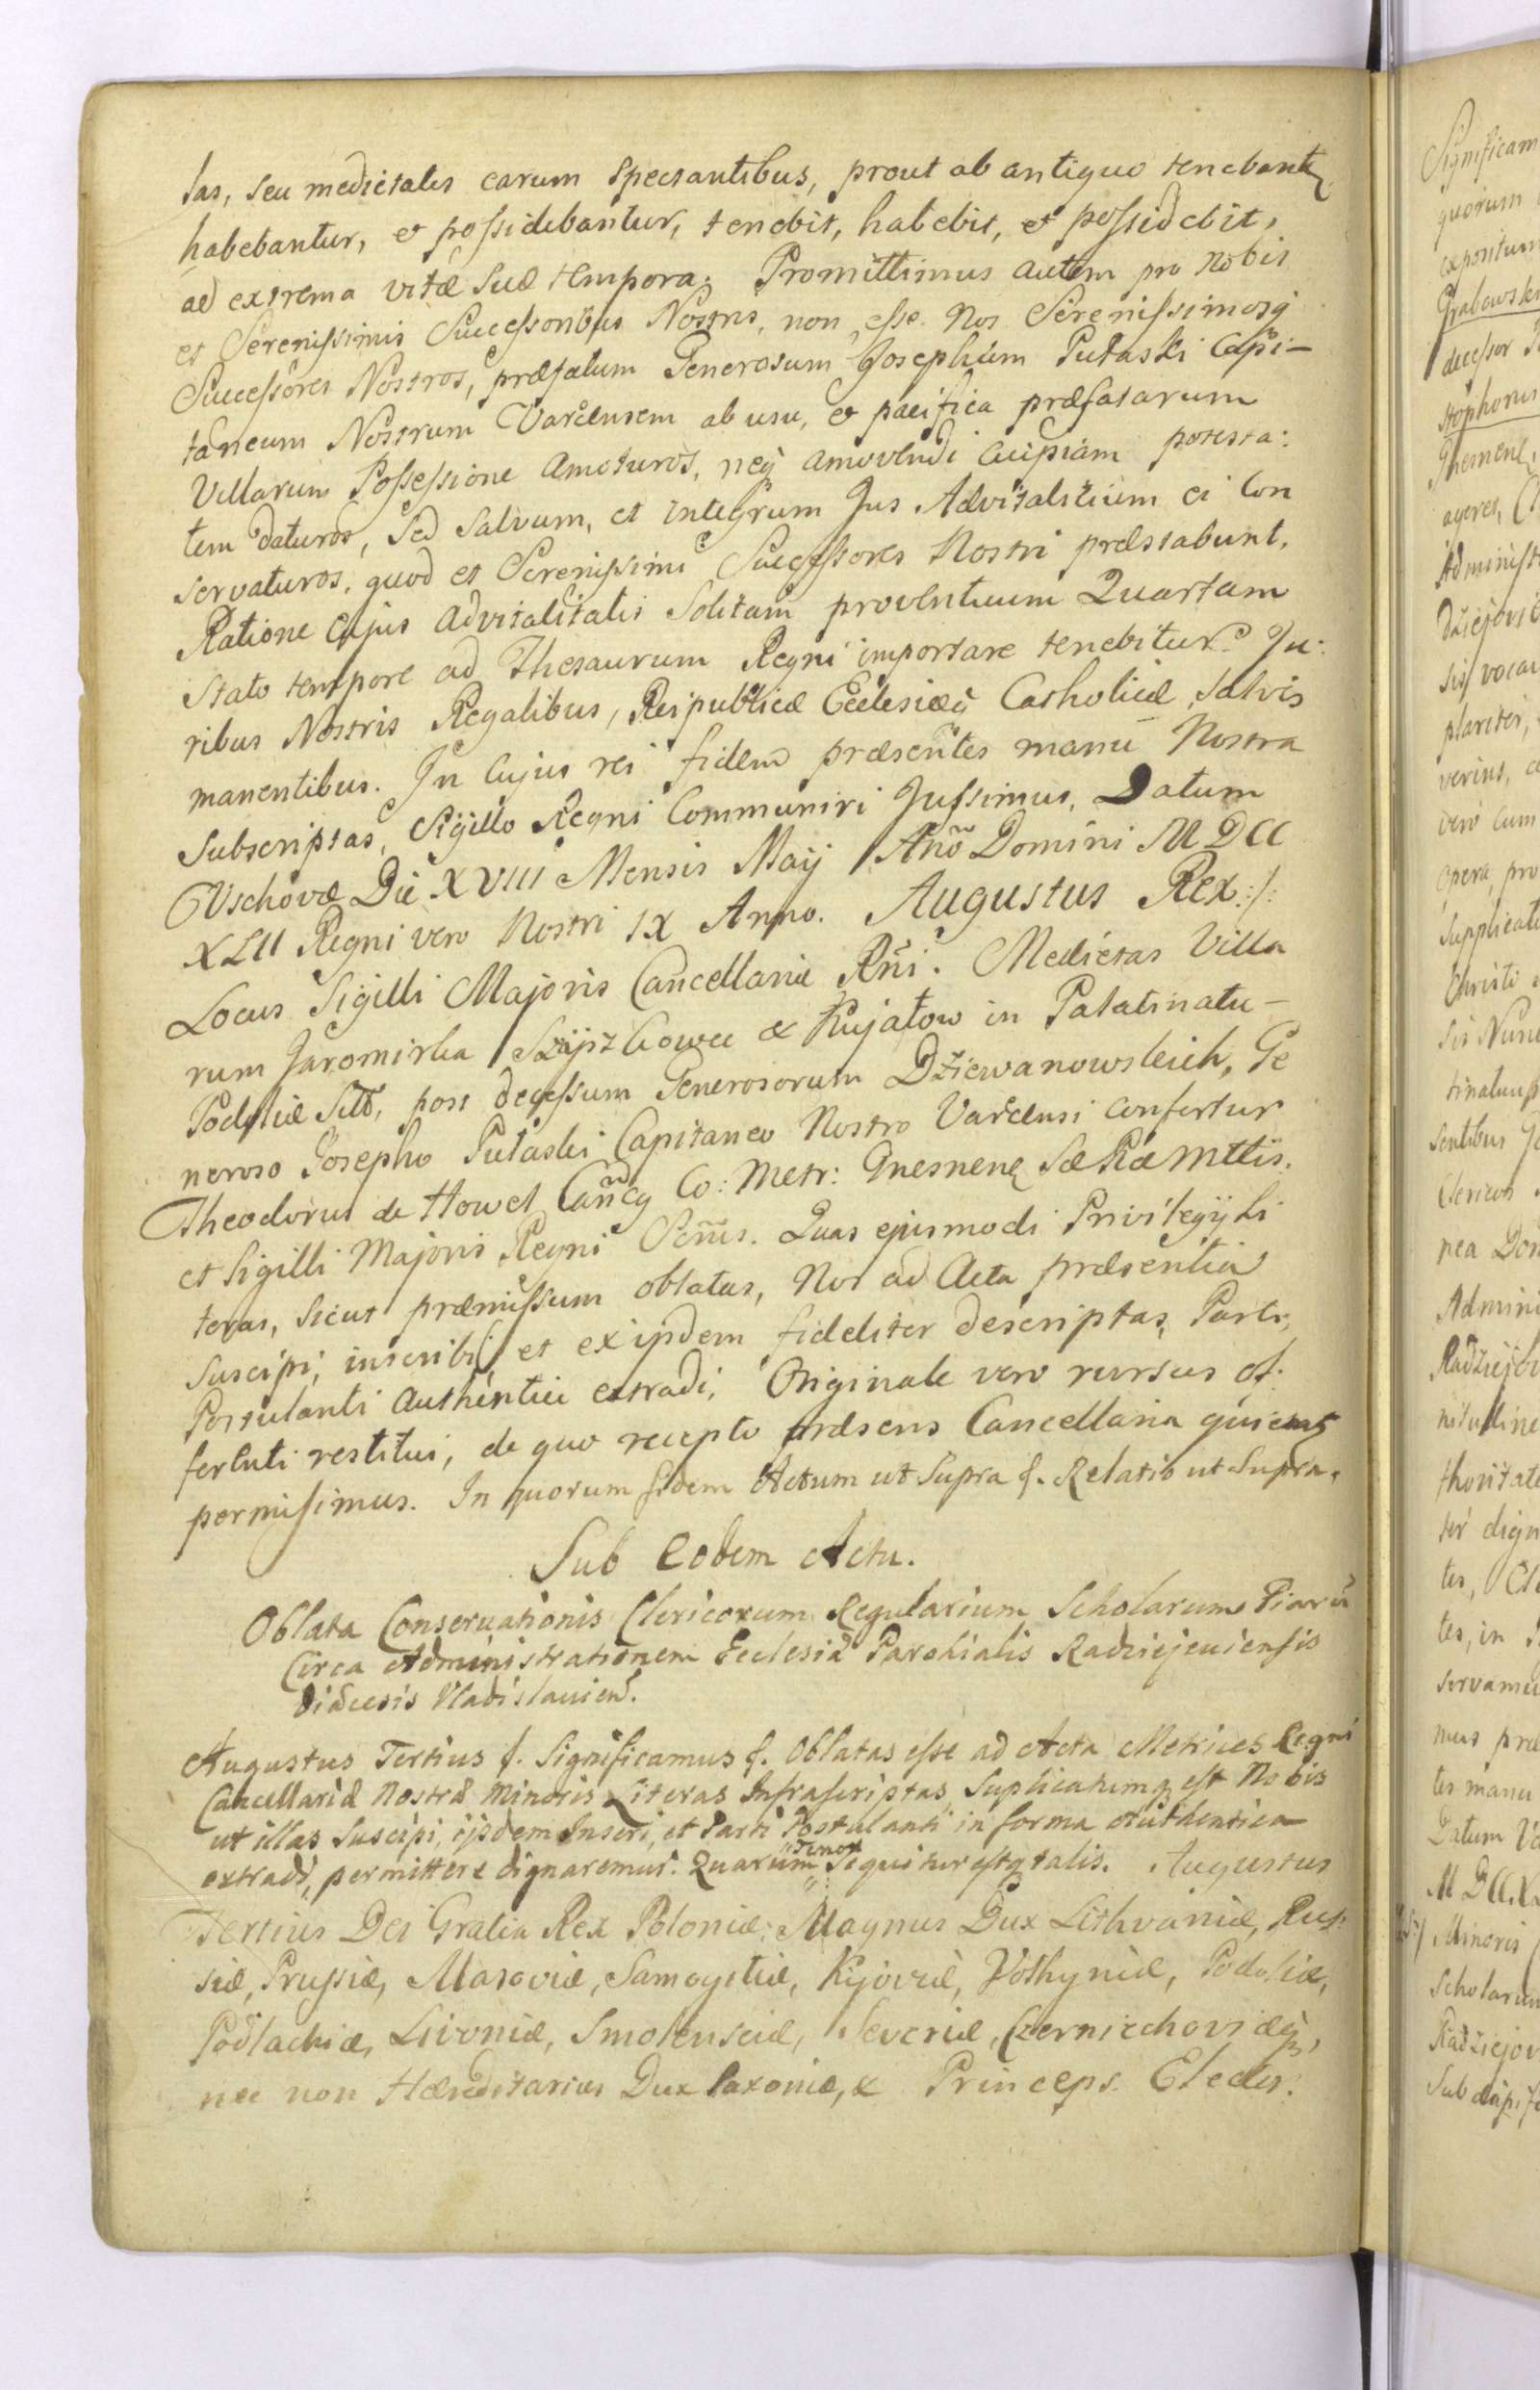 las, seu medietates earum spectantibus, prout ab antiquo tenebantr
habebantur, et possidebantur, tenebit, habebit, et possidebit,
ad extrema vitæ suæ tempora. Promittimus autem pro Nobis
et Serenissimis Successoribus Nostris, non esse Nos Serenissimosq
Successores Nostros, præfatum Generosum Josephum Pułaski Capi-
taneum Nostrum Varcensem ab usu, et pacifica præfatarum
Villarum Possessione amoturos, neq amovendi cuipiam potesta:
tem daturos, sed salvum, et integrum Jus Advitalitium ei con
servaturos, quod et Serenissimi Successores Nostri præstabunt.
Ratione cujus advitalitatis solitam proventuum Quartam
stato tempore ad Thesaurum Regni importare tenebitur. Ju:
ribus Nostris Regalibus, Reipublicæ Ecclesiæq Catholicæ, salvis
manentibus. In cujus rei fidem præsentes manu Nostra
subscriptas, Sigillo Regni Communiri Jussimus. Datum
Vschovæ Die XVIII Mensis Maij Año Domini MDCC
XLII Regni vero Nostri IX Anno. Augustus Rex:/:
Locus Sigilli Majoris Cancellariæ Rñi. Medietas Villa
rum Jaromirka Szÿszkowce & Kujałow in Palatinatu-
Podoliæ sitõ, post decessum Generosorum Dziewanowskich, Ge
neroso Josepho Pułaski Capitaneo Nostro Varcensi confertur
Theodorus de Howel Cañcg Co: Metr: Gnesnens SæRæMttis.
et Sigilli Majoris Regni Scrius. Quas ejusmodi Privilegÿ Li
teras, sicut præmissum oblatas, Nos ad Acta præsentia
suscipi, inscribi et ex ijsdem fideliter descriptas, Parti,
Postulanti authentice extradi, Originale vero rursus of:
ferenti restitui, de quo recepto præsens Cancellaria quietat
permisimus. In quorum fidem Actum ut supra f. Relatio ut supra.
Sub eodem Actu.
Oblata Conservationis Clericorum Regularium Scholarum Piarũ
Circa Administrationem Ecclesiæ Parohialis Radziejeviensis
Diæcesis Vladislavien.
Augustus Tertius f. Significamus f. Oblatas esse ad Acta Metrices Regni
Cancellariæ Nostræ Minoris Literas Infrascriptas, Suplicatumq est Nobis
ut illas suscipi, ijsdem Inseri, et Parti Postulanti in forma Authentica
extradi, permittere dignaremur. Quarum tenor sequitur estq talis. Augustus
Tertius Dei Gratia Rex Poloniæ, Magnus Dux Lithvaniæ, Rus:
siæ, Prussiæ, Masoviæ, Samogitiæ, Kijoviæ, Volhyniæ, Podoliæ,
Podlachiæ, Livoniæ, Smolensciæ, Severiæ, Czerniechoviæq,
nec non Hæreditarius Dux Saxoniæ, & Princeps Elector.